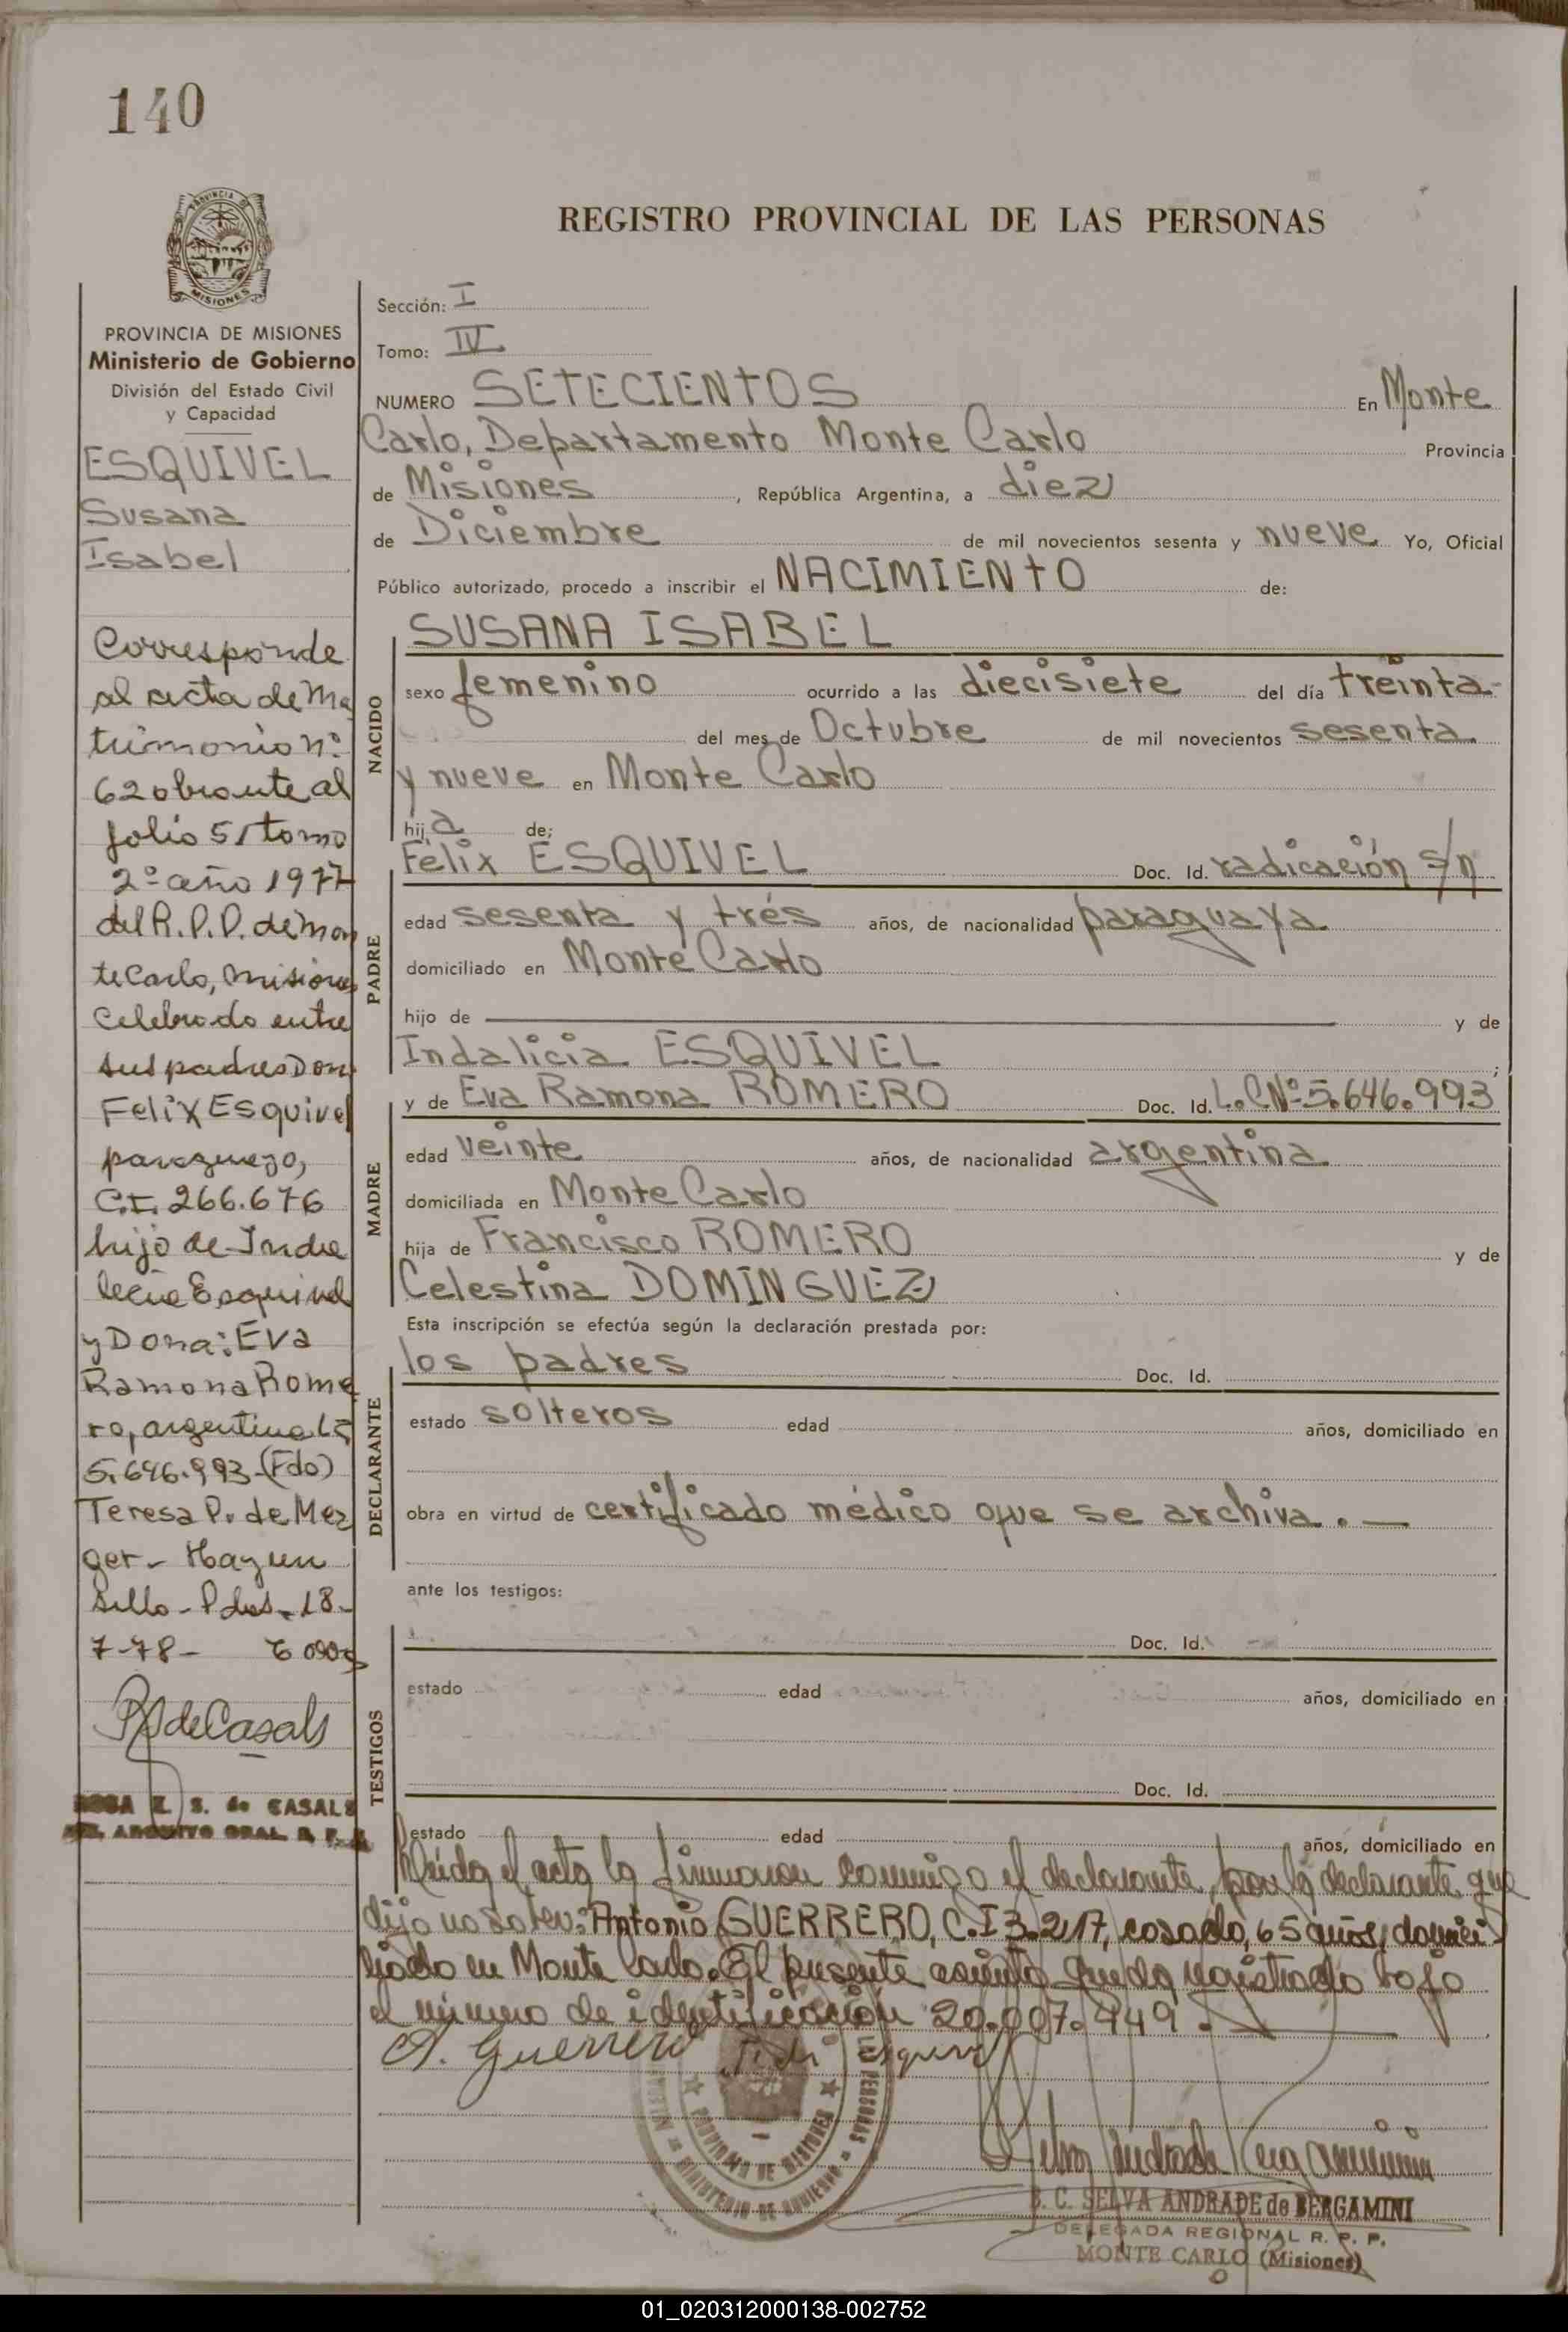 140
PROVINCIA DE
MISIONES
REGISTRO PROVINCIAL DE LAS PERSONAS
PROVINCIA DE MISIONES
Ministerio de Gobierno
División del Estado Civil
y Capacidad
ESQUIVEL
Susana
Isabel
Corresponde
al acta de Ma
trimonio nº
62 obrante al
folio 51 tomo
2º año 1977
del R.P.P. de Mon
te Carlo, Misiones
Celebrado entre
sus padres Don
Felix Esquivel
paraguayo,
C.I. 266.676
hijo de Inda
lecia Esquivel
y Dona: Eva
Ramona Rome
ro, argentina LC
5.646.993-(Fdo)
Teresa P. de Mez
ger - Hay un
sello - Pdas - 18-
7-78-
RSdeCasals
Z. S. de CASALS
Sección: I
Tomo: IV
NUMERO SETECIENTOS En Monte
Carlo, Departamento Monte Carlo Provincia
de Misiones, República Argentina, a diez
de Diciembre de mil novecientos sesenta y nueve Yo, Oficial
Público autorizado, procedo a inscribir el NACIMIENTO de:
NACIDO
SUSANA ISABEL
sexo femenino ocurrido a las diecisiete del día treinta-
del mes de Octubre de mil novecientos sesenta
y nueve en Monte Carlo
hija de:
PADRE
Félix ESQUIVEL Doc. Id. radicación s/n
edad sesenta y trés años, de nacionalidad paraguaya
domiciliado en Monte Carlo
hijo de y de
Indalicia ESQUIVEL;
MADRE
y de Eva Ramona ROMERO Doc. Id. L.C Nº 5.646.993
edad veinte años, de nacionalidad argentina
domiciliada en Monte Carlo
hija de Francisco ROMERO y de
Celestina DOMINGUEZ
Esta inscripción se efectúa según la declaración prestada por:
DECLARANTE
los padres Doc. Id.
estado solteros edad años, domiciliado en
obra en virtud de certificado médico que se archiva.—
ante los testigos:
TESTIGOS
Doc. Id.
estado edad años, domiciliado en
Doc. Id.
estado edad años, domiciliado en
Leída el acta la firmaron conmigo el declarante, por la declarante que
dijo no saber: Antonio GUERRERO, C.I 3.217, casado, 65 años, domici
liado en Monte Carlo. El presente asiento queda registrado bajo
el número de identificación 20.007.449.
A. Guerrero Esquivel
PROVINCIA DE MISIONES
MINISTERIO DE GOBIERNO
B. C. SELVA ANDRADE de BERGAMINI
DELEGADA REGIONAL R. P. P.
MONTE CARLO (Misiones)
01_020312000138-002752